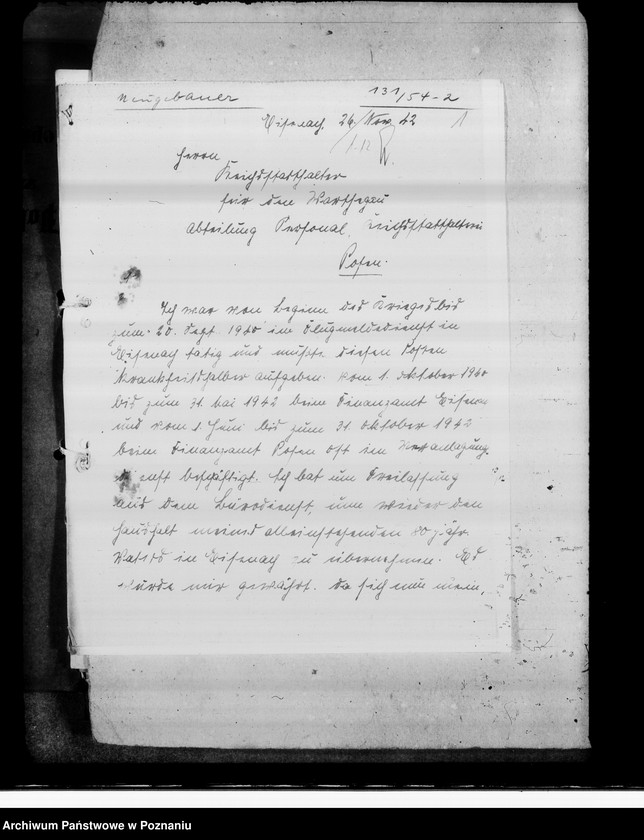 Neugebauer
131/54-2
Eisenach, 26. Nov. 42
1
1.12.
Herrn
Reichsstatthalter
für den Warthegau
Abteilung Personal, Reichsstatthalterei
Posen.
Ich war von Beginn des Krieges bis
zum 20. Sept. 1940 im Flugmeldedienst in
Eisenach tätig und mußte diesen Posten
krankheitshalber aufgeben. Vom 1. Oktober 1940
bis zum 31. Mai 1942 beim Finanzamt Eisenach
und vom 1. Juni bis zum 31. Oktober 1942
beim Finanzamt Posen Ost im Veranlagungs-
dienst beschäftigt. Ich bat um Freilassung
aus dem Bürodienst, um wieder den
Haushalt meines alleinstehenden 80 jähr.
Vaters in Eisenach zu übernehmen. Es
wurde mir gewährt. Da sich nun mein
Archiwum Państwowe w Poznaniu